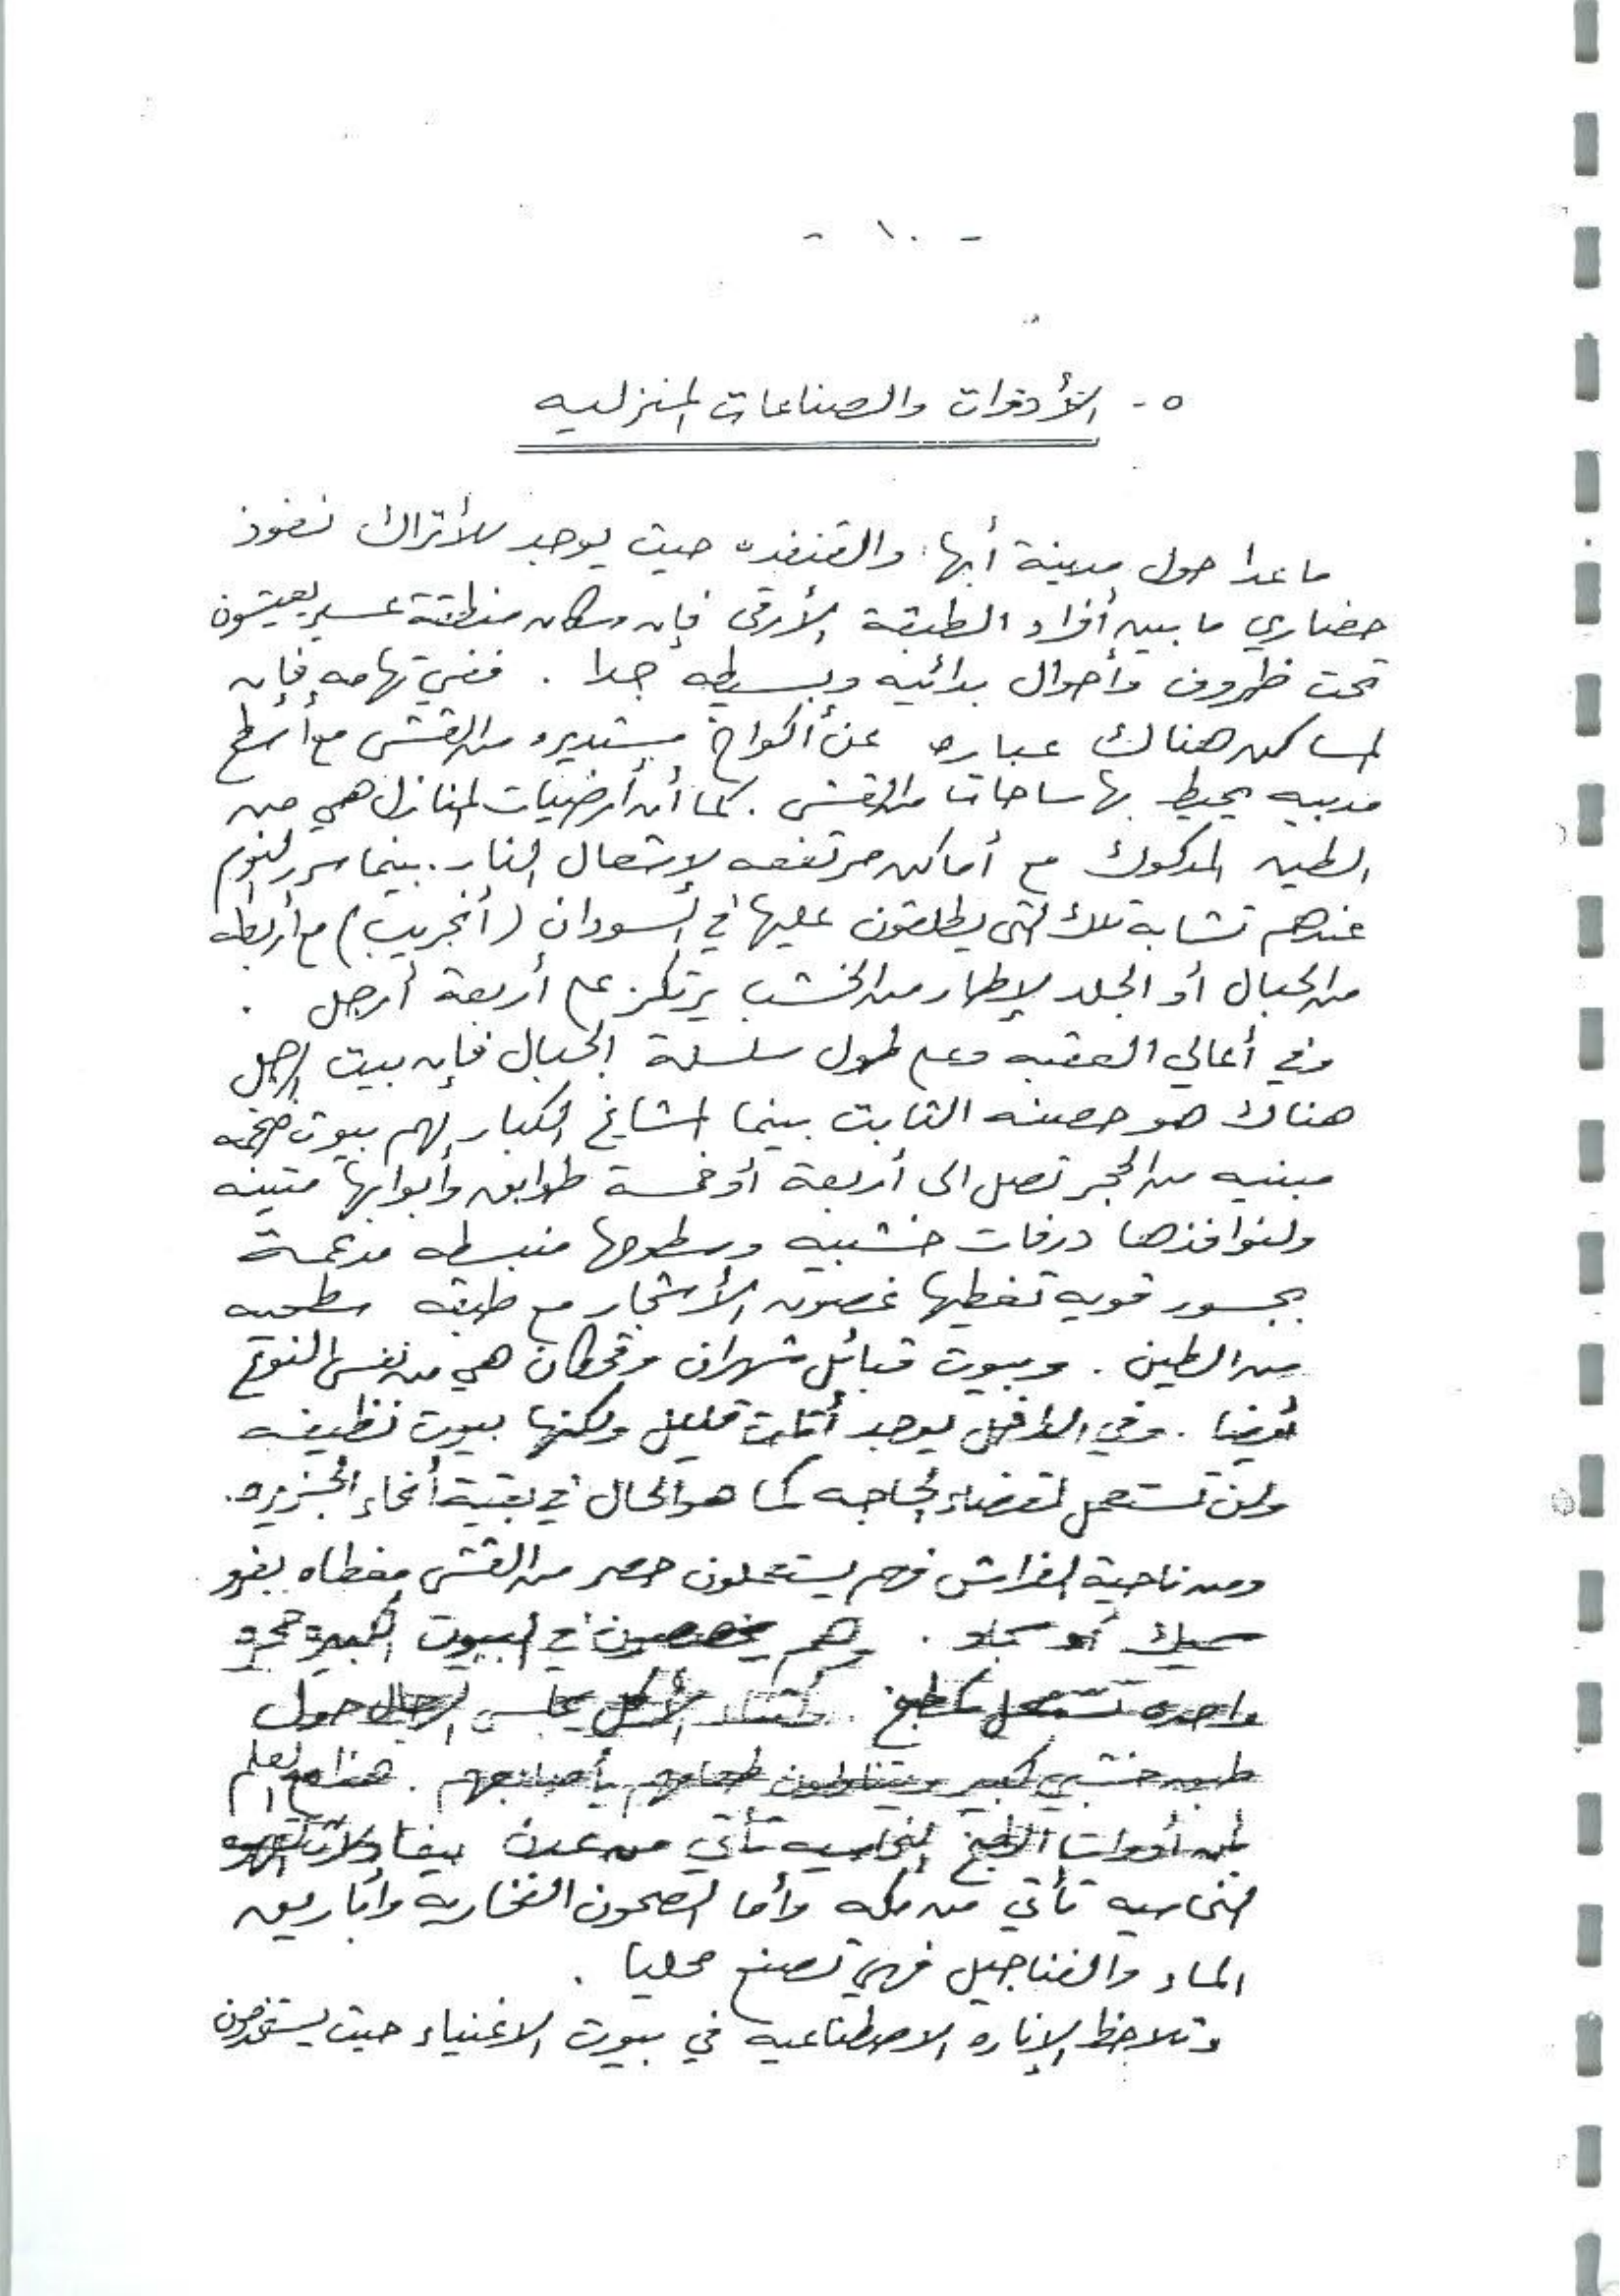 - ١٠ -
٥- الأدوات والصناعات المنزليه
ما عدا حول مدينة أبها والقنفده حيث يوجد للأتراك نفوذ
حضاري ما بين أفراد الطبقة الأرقى فإن سكان منطقة عسير يعيشون
تحت ظروف وأحوال بدائيه وبسيطه جدا . ففي تهامه فإن
المساكن هناك عباره عن أكواخ مستديره من القش مع أسطح
مدببه يحيط بها ساحات من القش . كما أن أرضيات المنازل هي من
الطين المدكوك مع أماكن مرتفعه لإشعال النار . بينما سرر النوم
عندهم تشابة تلك التى يطلقون عليها في السودان (أنجريب) مع أربطه
من الحبال أو الجلد لإطار من الخشب يرتكز على أربعة أرجل .
وفي أعالي العقبه وعلى طول سلسلة الجبال فإن بيت الرجل
هناك هو حصنه الثابت بينما المشايخ الكبار لهم بيوت ضخمه
مبنيه من الحجر تصل الى أربعة أو خمسة طوابق وأبوابها متينه
ولنوافذها درفات خشبيه وسطوحها منبسطه مدعمة
بجسور قويه تغطيها غصون الأشجار مع طبقه سطحيه
من الطين . وبيوت قبائل شهران وقحطان هي من نفس النوع
أيضا . وفي الداخل يوجد أثاث قليل ولكنها بيوت نظيفه
ولن تستعمل لقضاء الحاجه كما هو الحال في بقية أنحاء الجزيره.
ومن ناحية الفراش فهم يستعملون حصر من القش مغطاه بفرو
سميك أو سجاد . وهم يخصصون في البيوت الكبيره حجره
واحده تستعمل كمطبخ . وأثناء الأكل يجلس الرجال حول
طبق خشبي كبير ويتناولون طعامهم بأصابعهم . هذا مع العلم
بأن أدوات الطبخ النحاسيه تأتي من عدن بينما دلال القهوه
النحاسيه تأتي من مكه وأما الصحون الفخارية وأباريق
الماء والفناجيل فهي تصنع محليا .
وتلاحظ الإناره الاصطناعيه في بيوت الاغنياء حيث يستخدمون